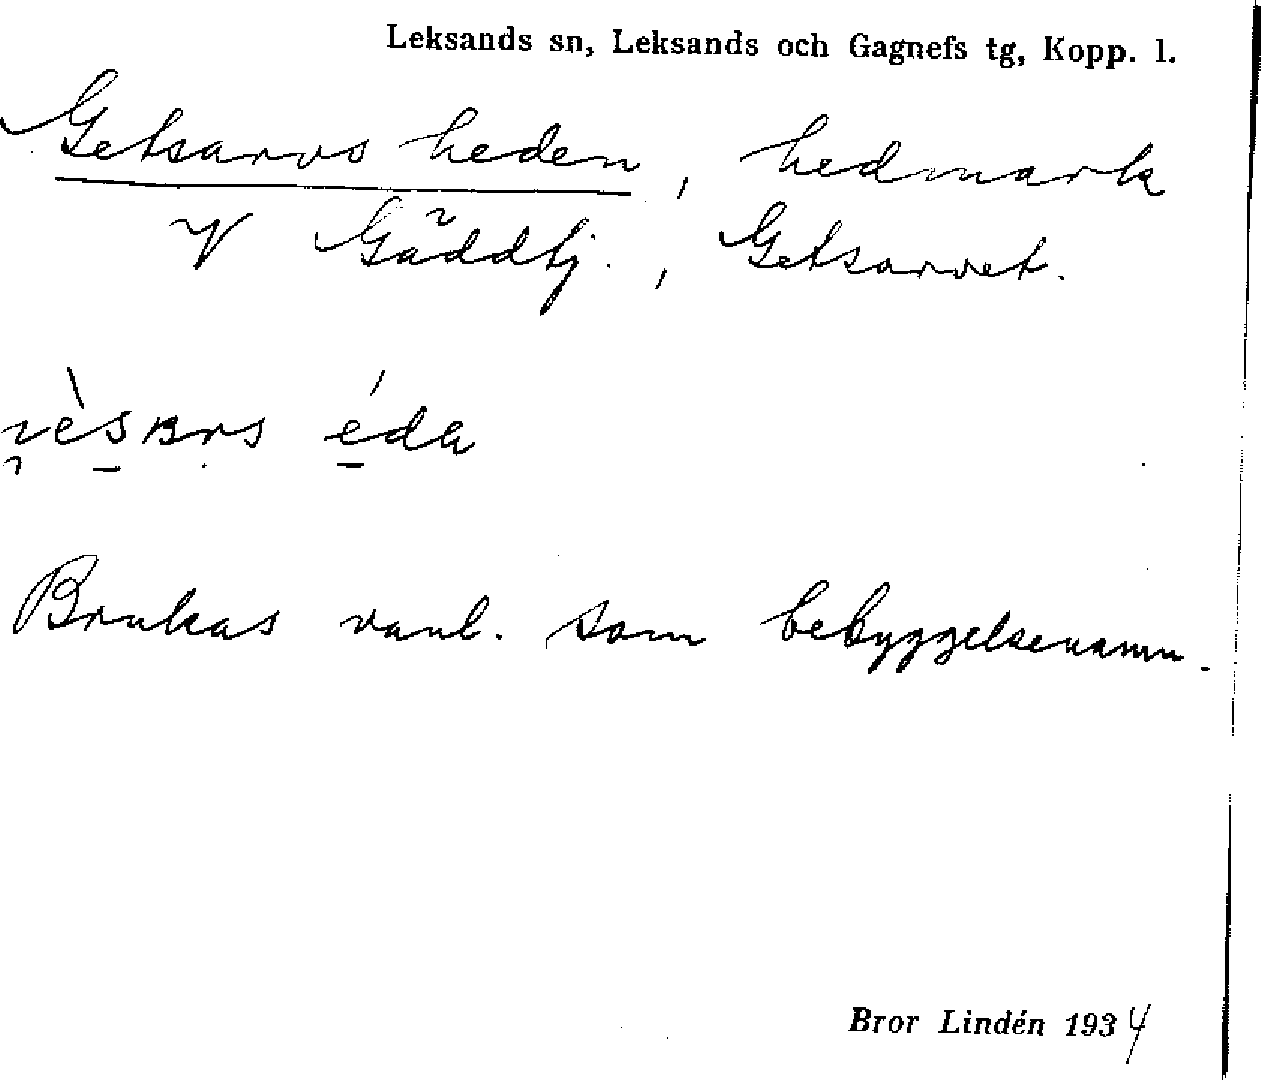 Leksands sn, Leksands och Gagnefs tg, Kopp. l.
Getsarvs heden, hedmark
V Gäddtj., Getsarvet.
éda
Brukas vanl. som bebyggelsenamn.
Bror Lindén 1934